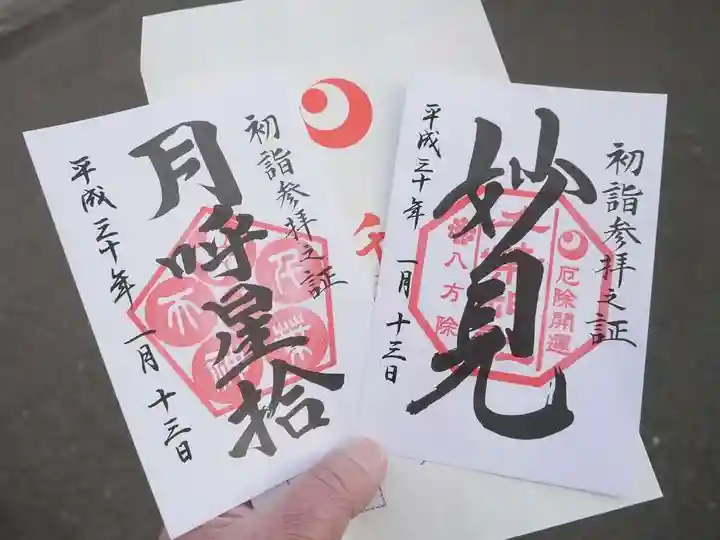 初詣参拝之証
月呼星拾
平成三十年 一月 十三日
初詣参拝之証
妙見
厄除開運
八方除
平成三十年 一月 十三日